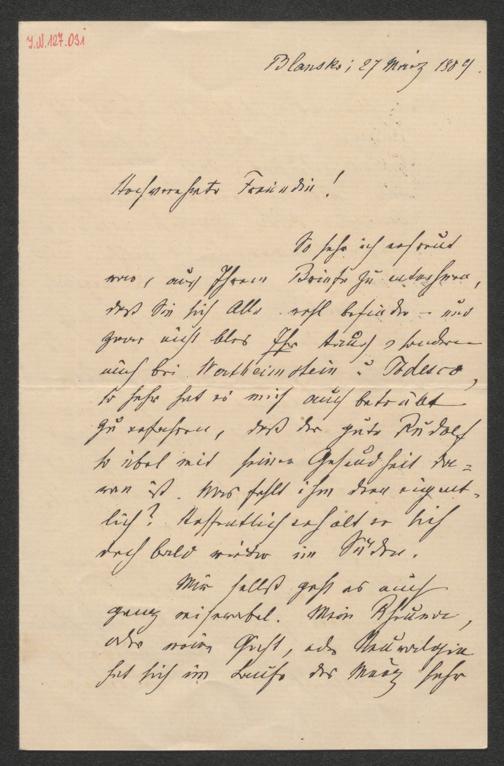 J.N. 127.031
Blansko, 27 März 1889.
Hochverehrte Freundin!
So sehr ich erfreut
war, aus Ihrem Briefe zu entnehmen,
daß Sie sich Alle wohl befinden – und
zwar nicht blos Ihr Auch, sondern
auch bei Wertheimstein u Todesco,
so sehr hat es mich auch betrübt
zu erfahren, daß der gute Rudolf
so übel mit seiner Gesundheit da-
ran ist. Was fehlt ihm denn eigent-
lich? Hoffentlich erholt er sich
doch bald wieder im Süden.
Mir selbst geht es auch
ganz miserabel. Mein Rheuma,
oder meine Gicht, oder Neuralgie
hat sich im Laufe des März sehr